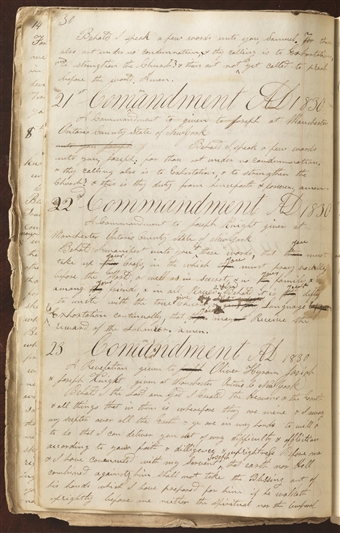 30
Behold I speak a few words unto you Samuel for thou
also art under no condemnation & thy calling is to Exhortation
& to strengthen the Church & thou art not yet called to preach
before the world, Amen.
21st Commandment AD 1830
A Commandment to given to Joseph at Manchester
Ontario County State of New York
Behold I speak a few words
unto you, Joseph, for thou art under no condemnation
& thy calling also is to Exhortation, & to strengthen the
Church, & this is thy duty from henceforth & forever, amen.
22nd Commandment AD 1830
A Commandment to Joseph Knight given at
Manchester Ontario County State of New York
Behold I manifest unto you these words, that you must
take up your cross, in the which you must pray vocally
before the world as well as in secret, & in your family &
among your friends & in all places & it is your duty
to unite with the true Church & give your language to
Exhortation continually that you may Receive the
reward of the labourer, amen.
23 Commandment AD 1830
A Revelation given to Oliver Hyram Joseph
& Joseph Knight given at Manchester Ontario C New York
Behold I the Lord am God I created the Heavens & the Earth
& all things that in them is wherefore they are mine & I sway
my scepter over all the Earth & ye are in my hands to will &
to do that I can deliver you out of evry difficulty & affliction
according to your faith & dilligence & uprightness Before me
& I have covenanted with my Servent Joseph that earth nor Hell
combined against him shall not take the Blessing out of
his hands which I have prepared for him if he walketh
uprightly before me neither the spiritual nor the temporal